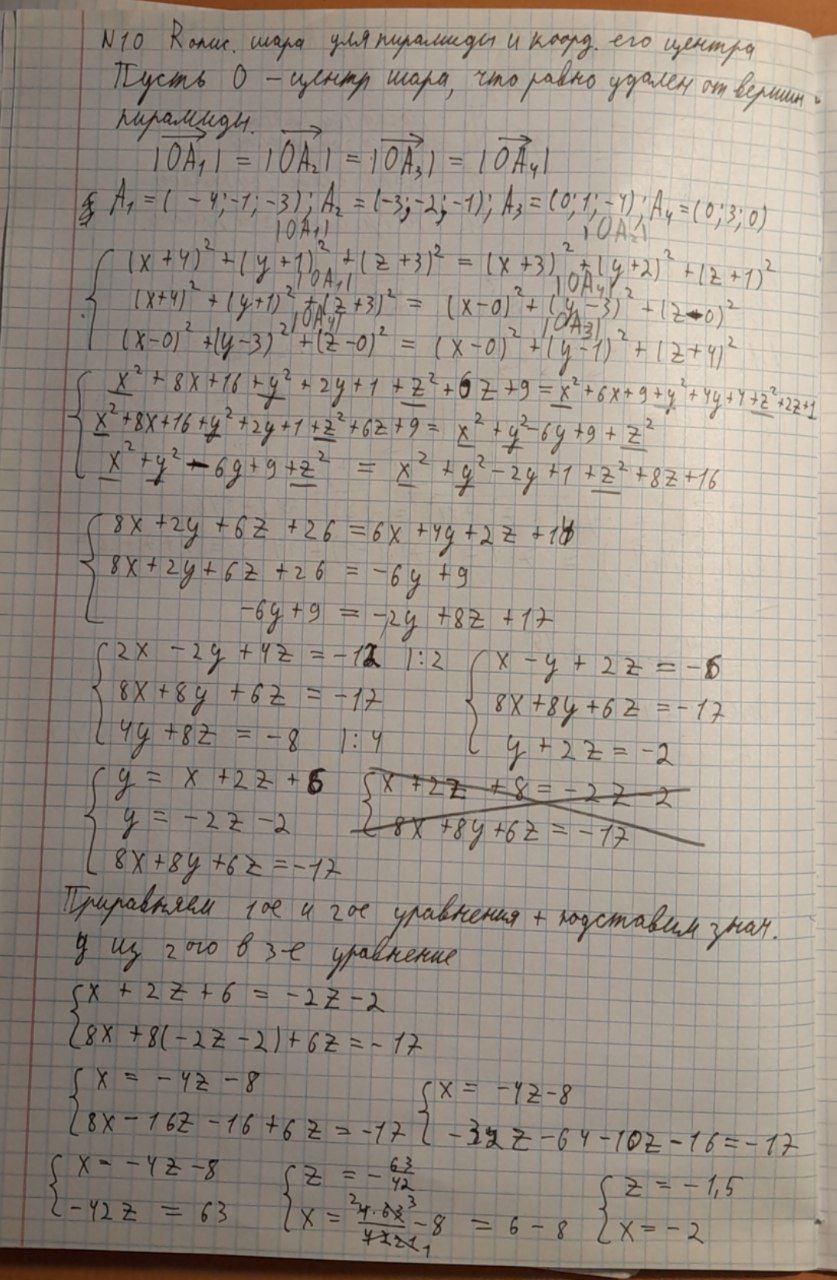 N10 Rопис. шара для пирамиды и коорд. его центра
Пусть O – центр шара, что равно удален от вершин
пирамиды.
|OA₁| = |OA₂| = |OA₃| = |OA₄|
A₁ = (-4;-1;-3); A₂ = (-3;-2;-1); A₃ = (0;1;-4); A₄ = (0;3;0)
|OA₁| |OA₂|
(x+4)² + (y+1)² + (z+3)² = (x+3)² + (y+2)² + (z+1)²
|OA₁| |OA₄|
(x+4)² + (y+1)² + (z+3)² = (x-0)² + (y-3)² + (z-0)²
|OA₄| |OA₃|
(x-0)² + (y-3)² + (z-0)² = (x-0)² + (y-1)² + (z+4)²
x² + 8x + 16 + y² + 2y + 1 + z² + 6z + 9 = x² + 6x + 9 + y² + 4y + 4 + z² + 2z + 1
x² + 8x + 16 + y² + 2y + 1 + z² + 6z + 9 = x² + y² - 6y + 9 + z²
x² + y² - 6y + 9 + z² = x² + y² - 2y + 1 + z² + 8z + 16
8x + 2y + 6z + 26 = 6x + 4y + 2z + 14
8x + 2y + 6z + 26 = -6y + 9
-6y + 9 = -2y + 8z + 17
2x - 2y + 4z = -12 |:2 x - y + 2z = -6
8x + 8y + 6z = -17 8x + 8y + 6z = -17
4y + 8z = -8 |:4 y + 2z = -2
y = x + 2z + 6 x + 2z + 8 = -2z - 2
y = -2z - 2 8x + 8y + 6z = -17
8x + 8y + 6z = -17
Приравняем 1ое и 2ое уравнения + подставим знач.
y из 2ого в 3-е уравнение
x + 2z + 6 = -2z - 2
8x + 8(-2z - 2) + 6z = -17
x = -4z - 8 x = -4z - 8
8x - 16z - 16 + 6z = -17 -32z - 64 - 10z - 16 = -17
x = -4z - 8 z = -63/42 z = -1,5
-42z = 63 x = 4·63/42 - 8 = 6 - 8 x = -2